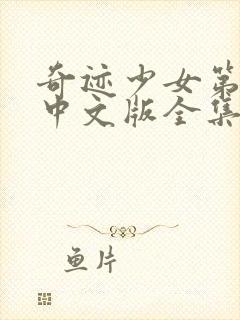 奇迹少女第
中文版全集
鱼片